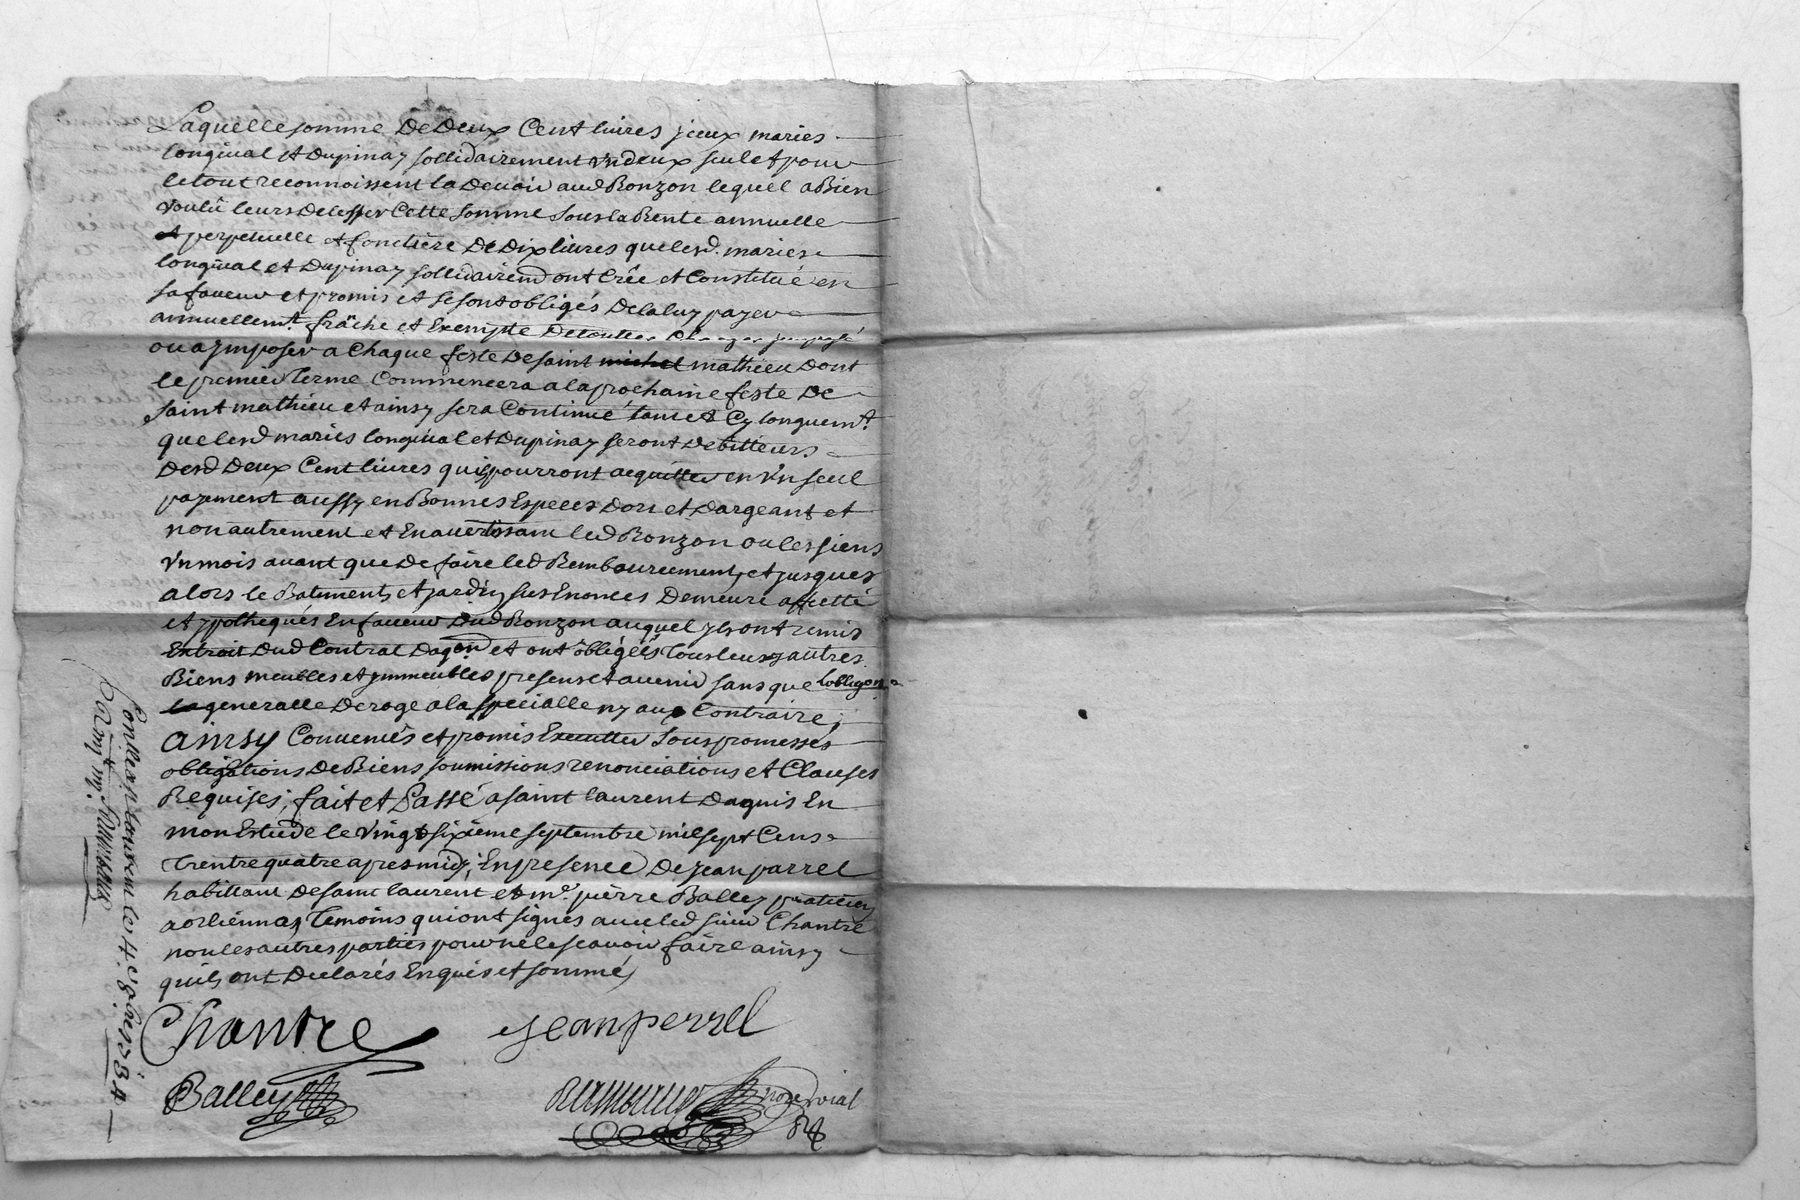 Laquelle somme De Deux Cent livres yceux maries
longival et Dupinay sollidairement un deux seul et pour
le tout reconnoissent la Devoir aud Ronzon lequel a Bien
voulû leurs Delesser Cette somme sous la Rente annuelle
et perpetuelle et fonctière De Dix livres que lesd. maries
longival et Dupinay sollidairemt ont Crée et Constitué en
sa faveur et promis et se sont obligés De la luy payer
annuellemt. frãche et Exempte De touttes Charges jmposé
ou a jmposer a Chaque feste De saint michel mathieu Dont
le premier Terme Commencera a la prochaine feste De
saint mathieu et ainsy sera Continué tant et Cy longuemt.
que lesd maries longival et Dupinay seront Debitteurs
Desd Deux Cent livres quils pourront acquitter en vn seul
payement aussy en Bonnes Especes Dors et Dargeant et
non autrement et En avertissant led Ronzon ou les siens
vn mois avant que De faire led Remboursement, et jusques
alors le Batiments et jardin sus Enonces Demeure affetté
et ypothequés En faveur Dud Ronzon auquel yls ont remis
Extrait Dud Contrat Daqon et ont obligées Tous leurs autres
Biens meubles et jmmeubles presens et avenir sans que lobligon
la generalle Deroge a la specialle ny aux Contraire;
ainsy Convenies et promis Executter sous promesses
obligations De Biens soumissions renonciations et Clauses
Requises; fait et Passé a saint laurent Dagnis En
mon Estude le vingt sixième septembre mil sept Cens
Trente quatre apres midy; En presence De jean parrel
habittant De saint laurent et me. pierre Balley praticien
a orliennas Temoins qui ont signés avec led sieur Chantre
non les autres parties pour ne le scavoir faire ainsy
quils ont Declarés Enquis et sommé,
Chantre
jean perrel
Balley
Conllé a st laurent le 4e. 8bre 1734